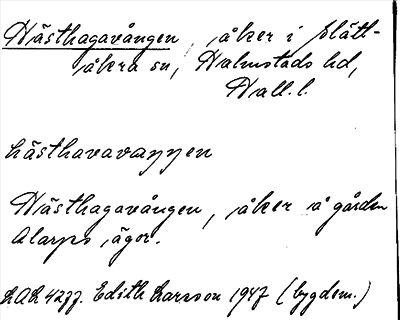 Hästhagavången, åker i Slätt-
åkra sn, Halmstads hd,
Hall. l.
hästhavavaŋŋen
Hästhagavången, åker å gården
Alarps ägor.
LAL 4277. Edith Larsson 1947 (bygdem.)